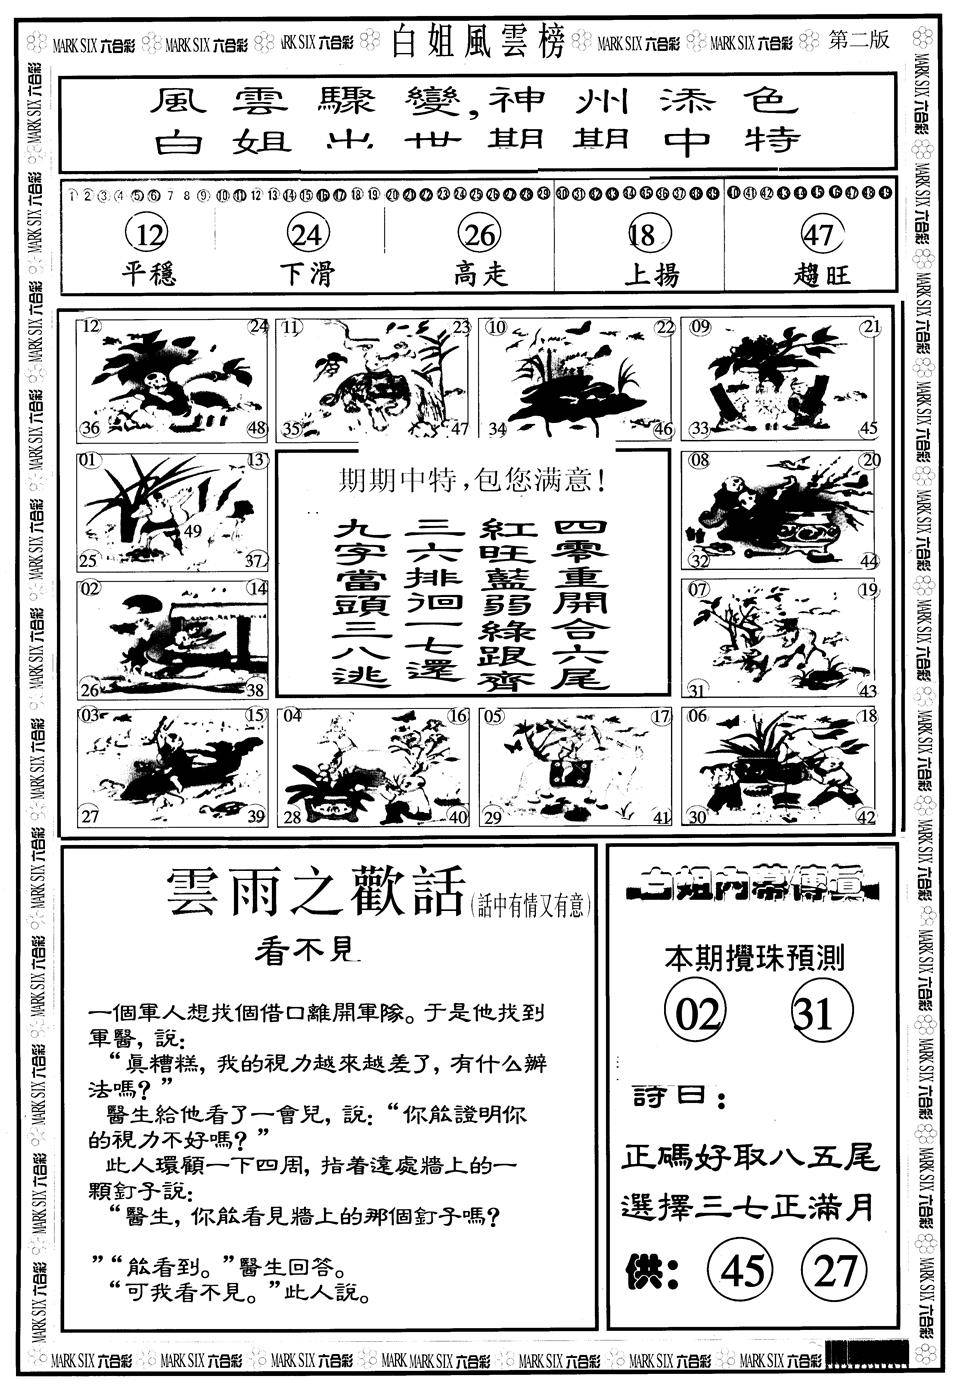 MARK SIX 六合彩 MARK SIX 六合彩 ARK SIX 六合彩 白姐風雲榜 MARK SIX 六合彩 MARK SIX 六合彩 第二版
風雲驟變,神州添色
白姐出世期期中特
1 2 3 4 5 6 7 8 9 10 11 12 13 14 15 16 17 18 19 20 21 22 23 24 25 26 27 28 29 30 31 32 33 34 35 36 37 38 39 40 41 42 43 44 45 46 47 48 49
12 24 26 18 47
平穩 下滑 高走 上揚 趨旺
12 24 11 23 10 22 09 21
36 48 35 47 34 46 33 45
01 13
49
25 37
08 20
32 44
02 14
26 38
07 19
31 43
期期中特,包您满意!
四零重開合六尾
紅旺藍弱綠跟齊
三六排徊一七還
九字當頭三八逃
03 15 04 16 05 17 06 18
27 39 28 40 29 41 30 42
雲雨之歡話(話中有情又有意)
看不見
一個軍人想找個借口離開軍隊。于是他找到
軍醫,說:
“真糟糕,我的視力越來越差了,有什么辦
法嗎?”
醫生給他看了一會兒,說:“你能證明你
的視力不好嗎?”
此人環顧一下四周,指着遠處牆上的一
顆釘子說:
“醫生,你能看見牆上的那個釘子嗎?
”“能看到。”醫生回答。
“可我看不見。”此人說。
白姐內幕傳真
本期攪珠預測
02 31
詩曰:
正碼好取八五尾
選擇三七正滿月
供: 45 27
MARK SIX 六合彩 MARK SIX 六合彩 MARK SIX 六合彩 MARK MARK SIX 六合彩 MARK SIX 六合彩 MARK SIX 六合彩 MARK SIX 六合彩